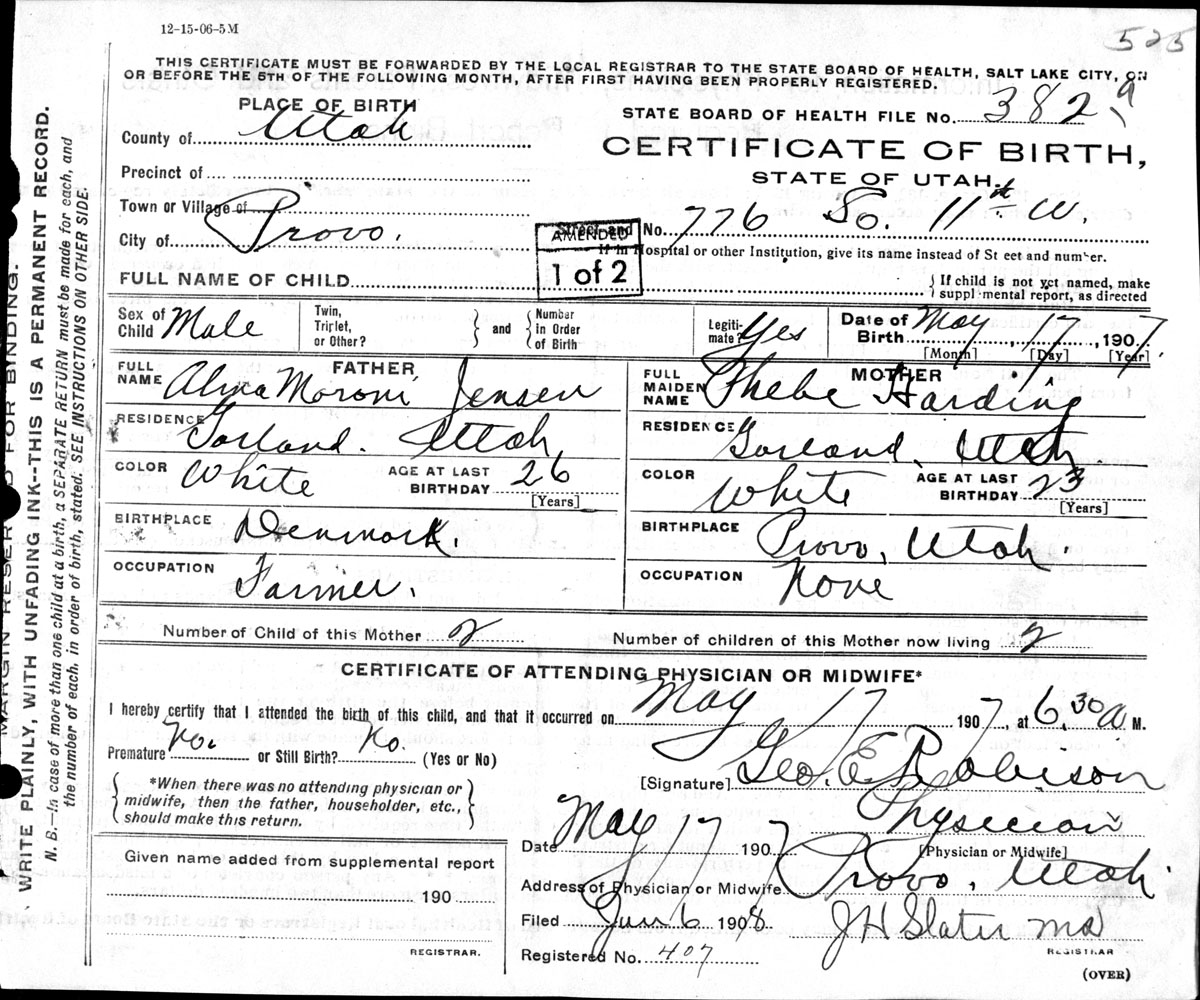 12-15-06-5M
525
THIS CERTIFICATE MUST BE FORWARDED BY THE LOCAL REGISTRAR TO THE STATE BOARD OF HEALTH, SALT LAKE CITY, ON
OR BEFORE THE 5TH OF THE FOLLOWING MONTH, AFTER FIRST HAVING BEEN PROPERLY REGISTERED.
PLACE OF BIRTH
County of Utah
Precinct of
Town or Village of
City of Provo.
STATE BOARD OF HEALTH FILE No. 382 9
CERTIFICATE OF BIRTH,
STATE OF UTAH.
Street and No. 776 So. 11th W
If in Hospital or other Institution, give its name instead of St eet and number.
AMENDED
1 of 2
FULL NAME OF CHILD
If child is not yet named, make
suppl mental report, as directed
Sex of Child Male
Twin, Triplet, or Other?
and
Number in Order of Birth
Legiti-mate? Yes
Date of Birth May 17, 1907.
[Month] [Day] [Year]
FATHER
FULL NAME Alma Moroni Jensen
RESIDENCE Garland. Utah
COLOR White
AGE AT LAST BIRTHDAY 26
[Years]
BIRTHPLACE Denmark.
OCCUPATION Farmer.
MOTHER
FULL MAIDEN NAME Phebe Harding
RESIDENCE Garland, Utah.
COLOR White
AGE AT LAST BIRTHDAY 23
[Years]
BIRTHPLACE Provo, Utah
OCCUPATION None
Number of Child of this Mother 2
Number of children of this Mother now living 2
CERTIFICATE OF ATTENDING PHYSICIAN OR MIDWIFE*
I hereby certify that I attended the birth of this child, and that it occurred on May 17 1907, at 6 30 A M.
Premature No. or Still Birth? No. (Yes or No)
*When there was no attending physician or
midwife, then the father, householder, etc.,
should make this return.
[Signature] Geo. E. Robison
Physician
[Physician or Midwife]
Date May 17 1907
Address of Physician or Midwife Provo, Utah.
Given name added from supplemental report
190
REGISTRAR.
Filed Jun 6 1908
J H Slater MD
REGISTRAR
Registered No. 407
(OVER)
MARGIN RESER D FOR BINDING.
WRITE PLAINLY, WITH UNFADING INK--THIS IS A PERMANENT RECORD.
N. B.—In case of more than one child at a birth, a SEPARATE RETURN must be made for each, and
the number of each, in order of birth, stated. SEE INSTRUCTIONS ON OTHER SIDE.